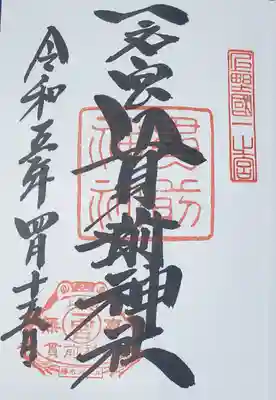 上野國一之宮
一之宮貫前神社
貫前神社
令和五年四月十五日